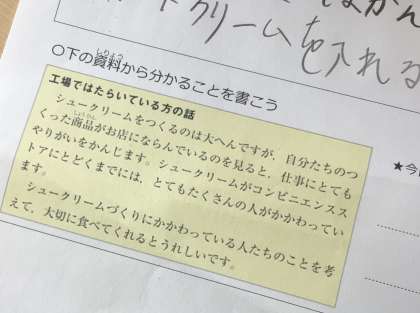 ドクリームを入れる
○下の資料から分かることを書こう
しりょう
工場ではたらいている方の話
シュークリームをつくるのは大へんですが、自分たちのつ
くった商品がお店にならんでいるのを見ると、仕事にとても
しょうひん
やりがいをかんじます。シュークリームがコンビニエンスス
トアにとどくまでには、とてもたくさんの人がかかわってい
ます。
シュークリームづくりにかかわっている人たちのことを考
えて、大切に食べてくれるとうれしいです。
★今